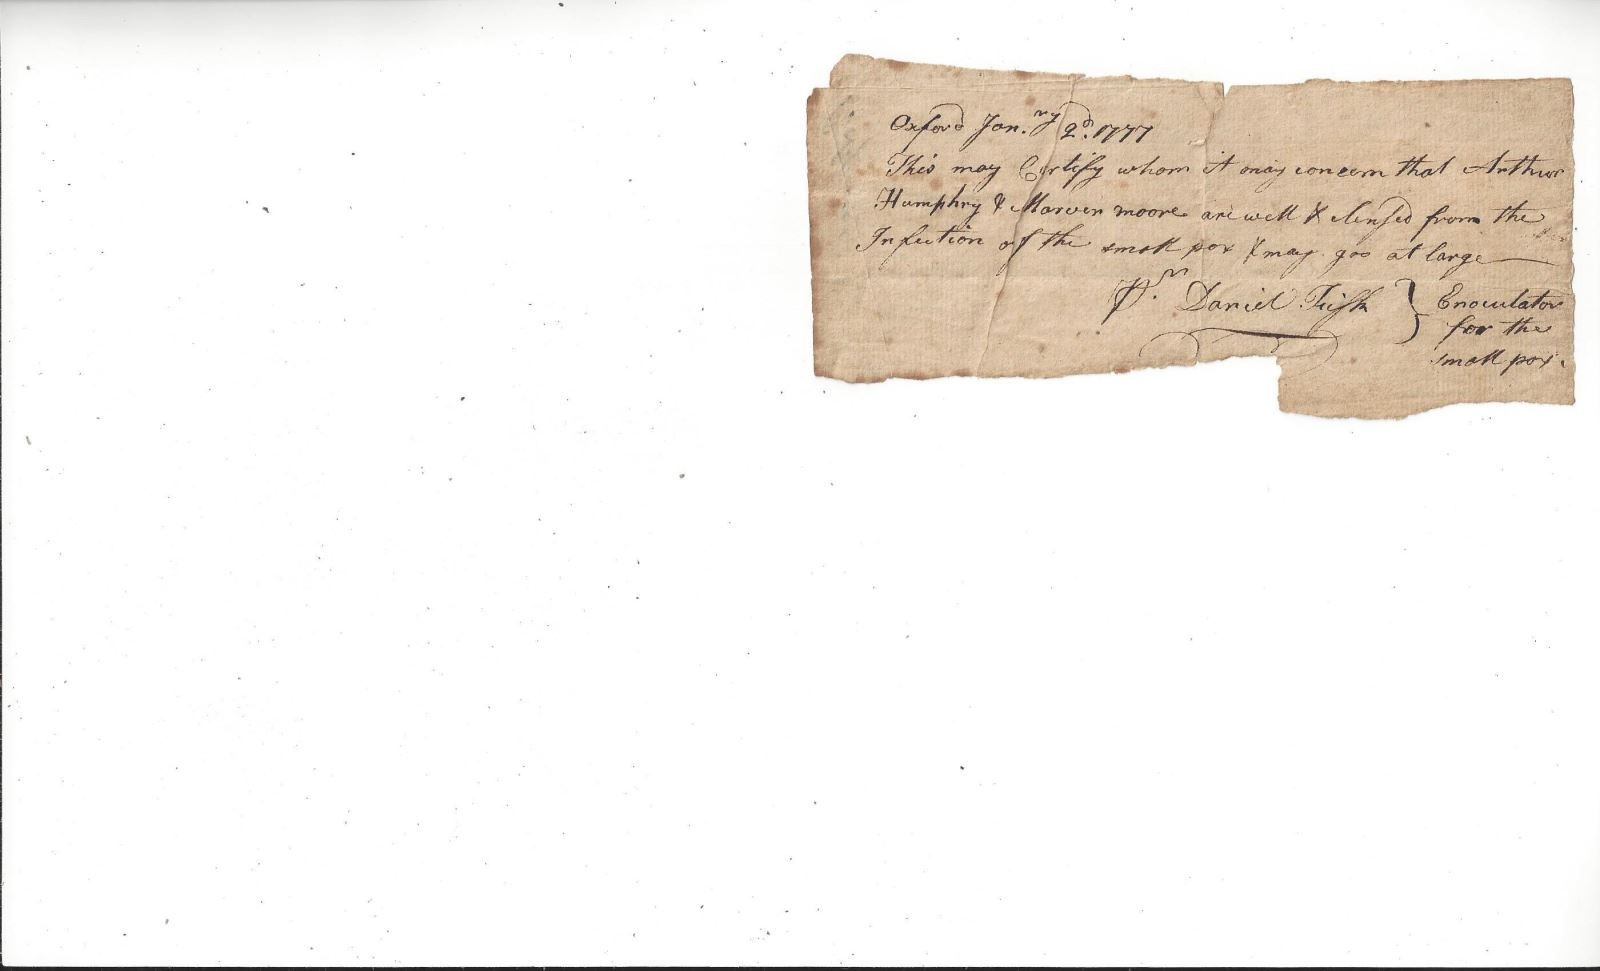 Oxford Jan.ry 2d. 1777
This may Certify whom it may concern that Arthur
Humphry & Marven moore are well & clensed from the
Infection of the small pox & may goo at large
Pr. Daniel Fisk } Enoculator
for the
small pox.